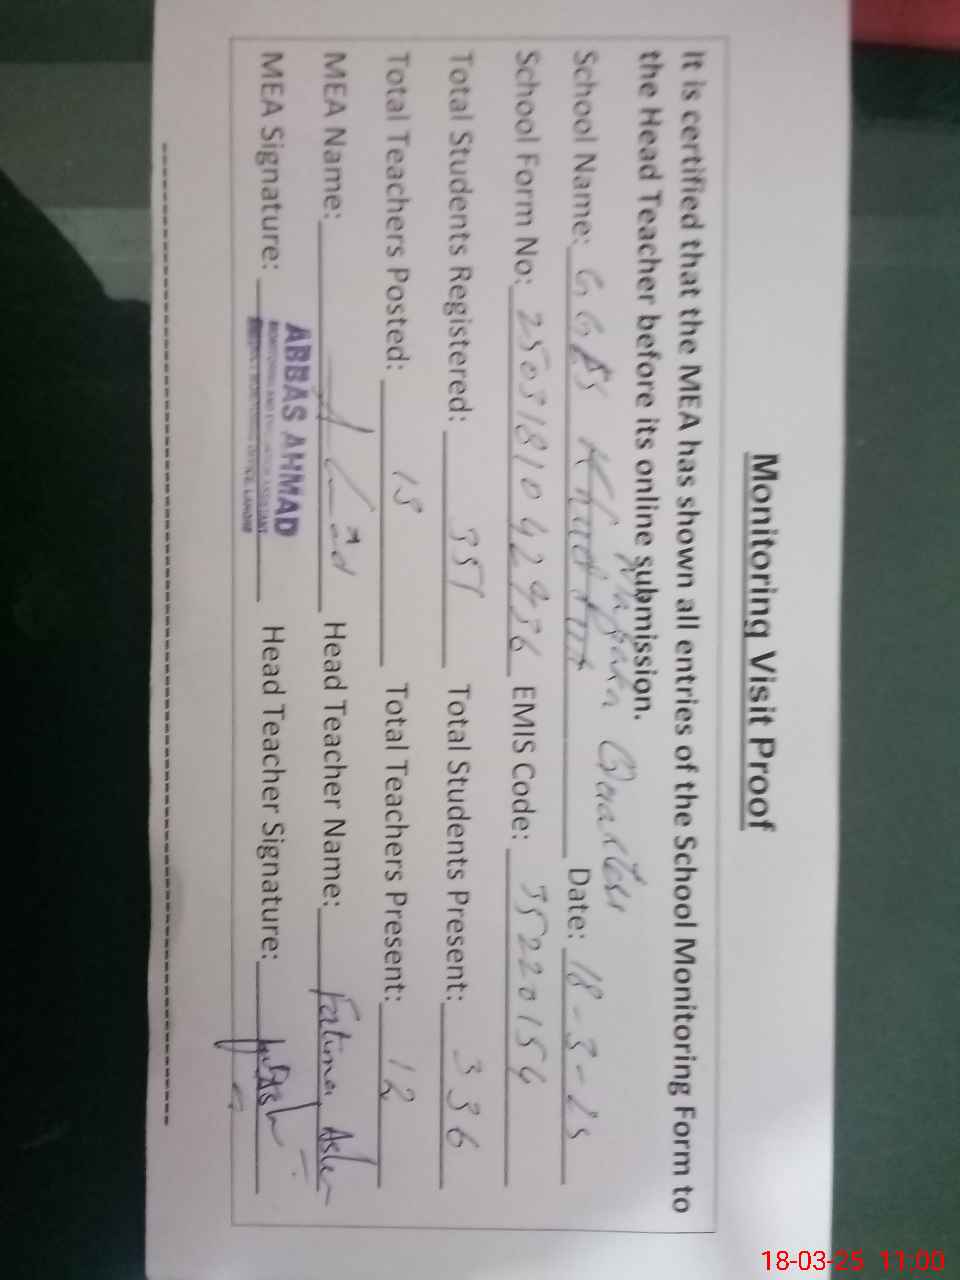 Monitoring Visit Proof
It is certified that the MEA has shown all entries of the School Monitoring Form to
the Head Teacher before its online submission.
Quarters
School Name: GGES Date: 18-3-25
School Form No: 2503181042936 EMIS Code: 35220154
Total Students Registered: 351 Total Students Present: 336
Total Teachers Posted: 13 Total Teachers Present: 12
MEA Name: Head Teacher Name: Fatima
MEA Signature: Head Teacher Signature:
ABBAS AHMAD
MONITORING AND EVALUATION ASSISTANT
DISTRICT MONITORING OFFICE, LAHORE
18-03-25 11:00